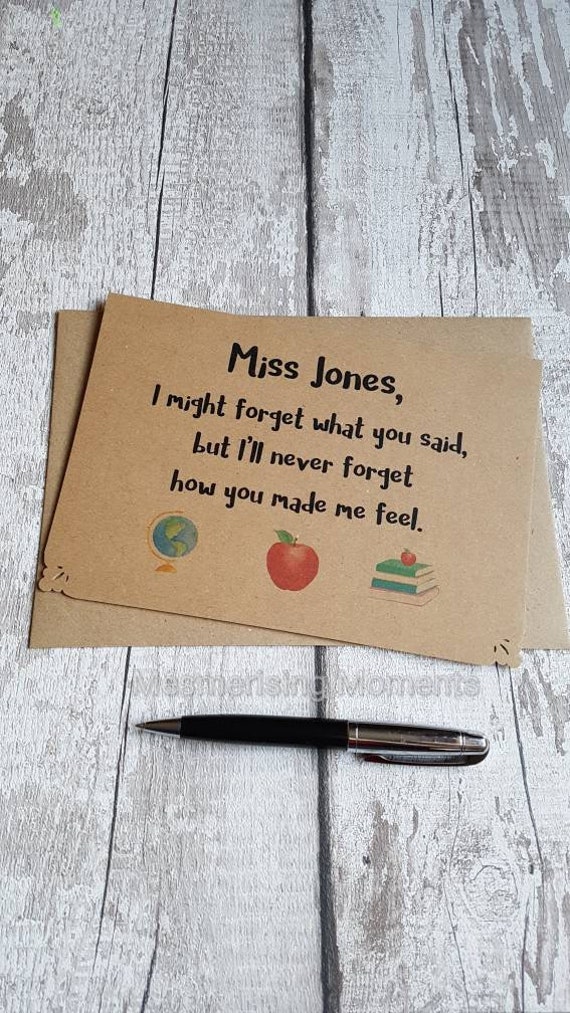 Miss Jones,
I might forget what you said,
but I'll never forget
how you made me feel.
Mesmerising Moments